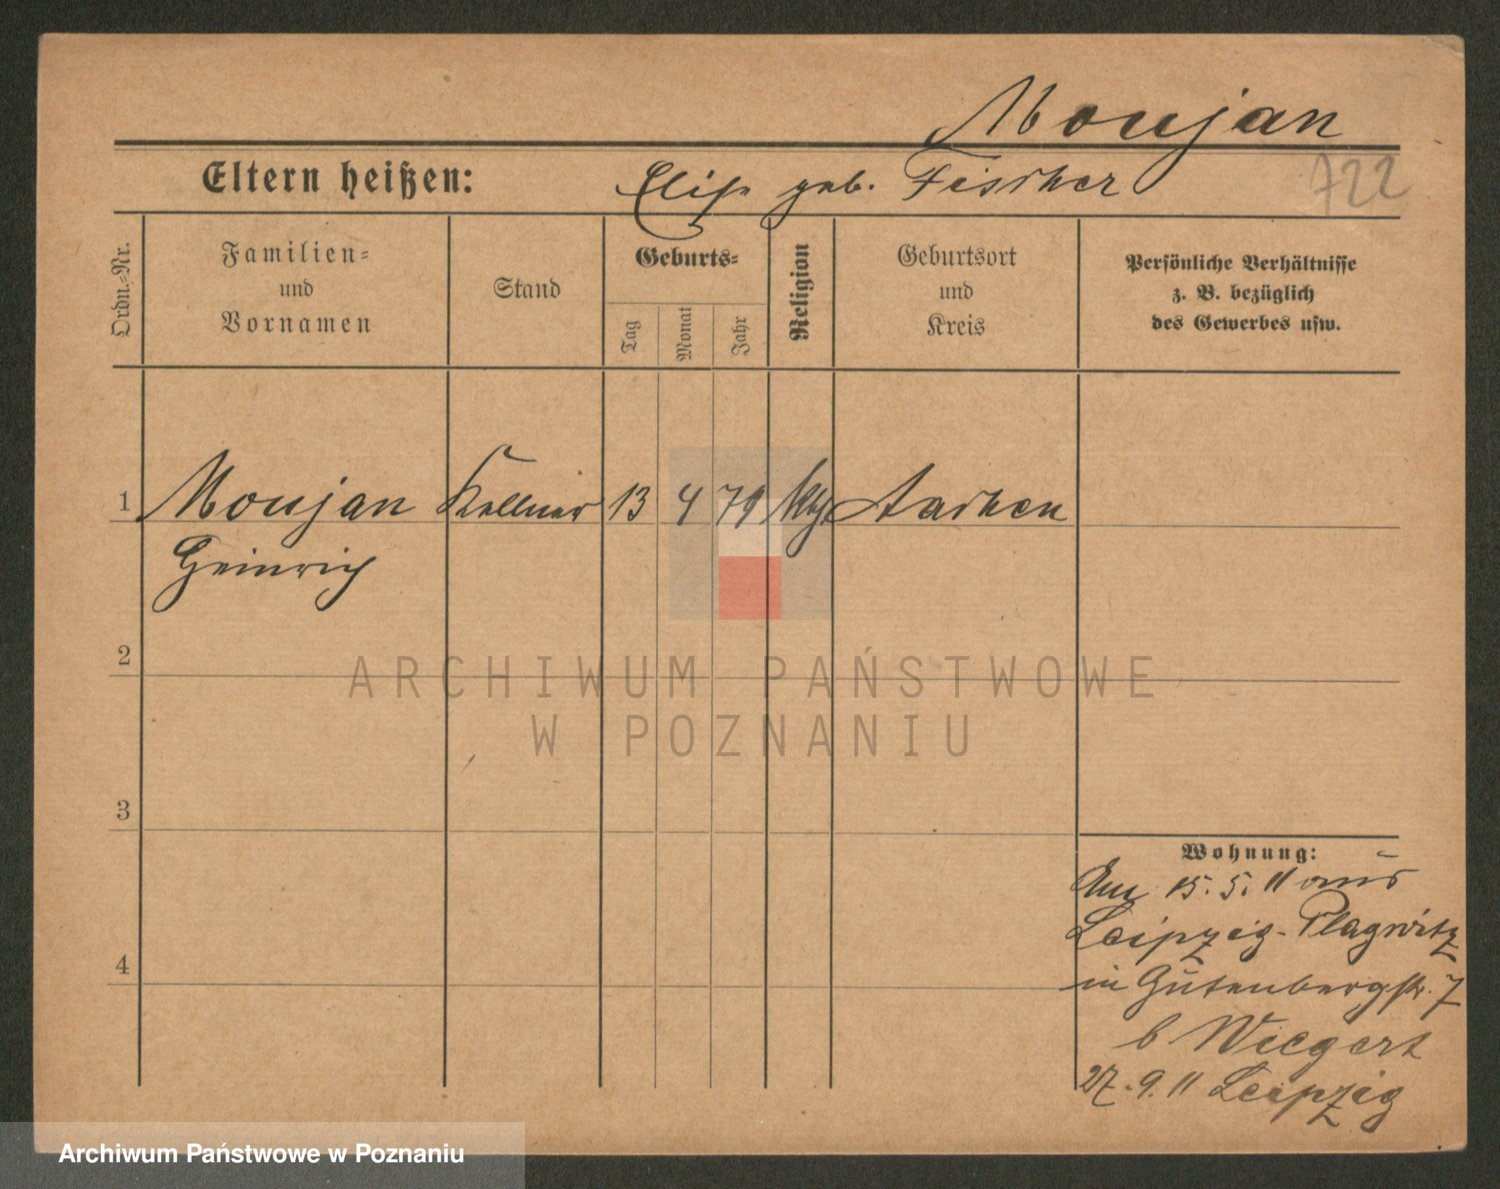 Moujan
722
Eltern heißen: Elise geb. Fischer
Ordn.-Nr.
Familien-
und
Vornamen
Stand
Geburts-
Tag
Monat
Jahr
Religion
Geburtsort
und
Kreis
Persönliche Verhältnisse
z. B. bezüglich
des Gewerbes usw.
1 Moujan Kellner 13 4 79 Aachen
Heinrich
2
ARCHIWUM PAŃSTWOWE
W POZNANIU
3
Wohnung:
Am 15.5.11 aus
Leipzig-Plagwitz
4
in Gutenbergstr. 7
b Wiegert
27.9.11 Leipzig
Archiwum Państwowe w Poznaniu